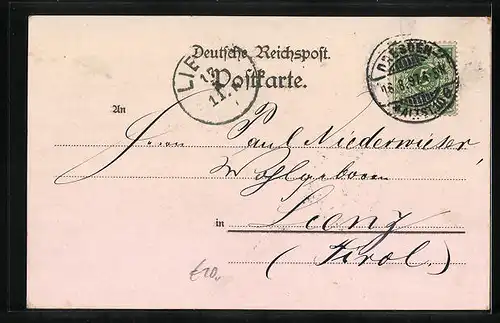 Deutsche Reichspost.
Postkarte.
LIE
13
11
DRESDEN
An
Herrn Paul Niederwieser
Wohlgeboren
in Lienz
(Tirol.)
£20,